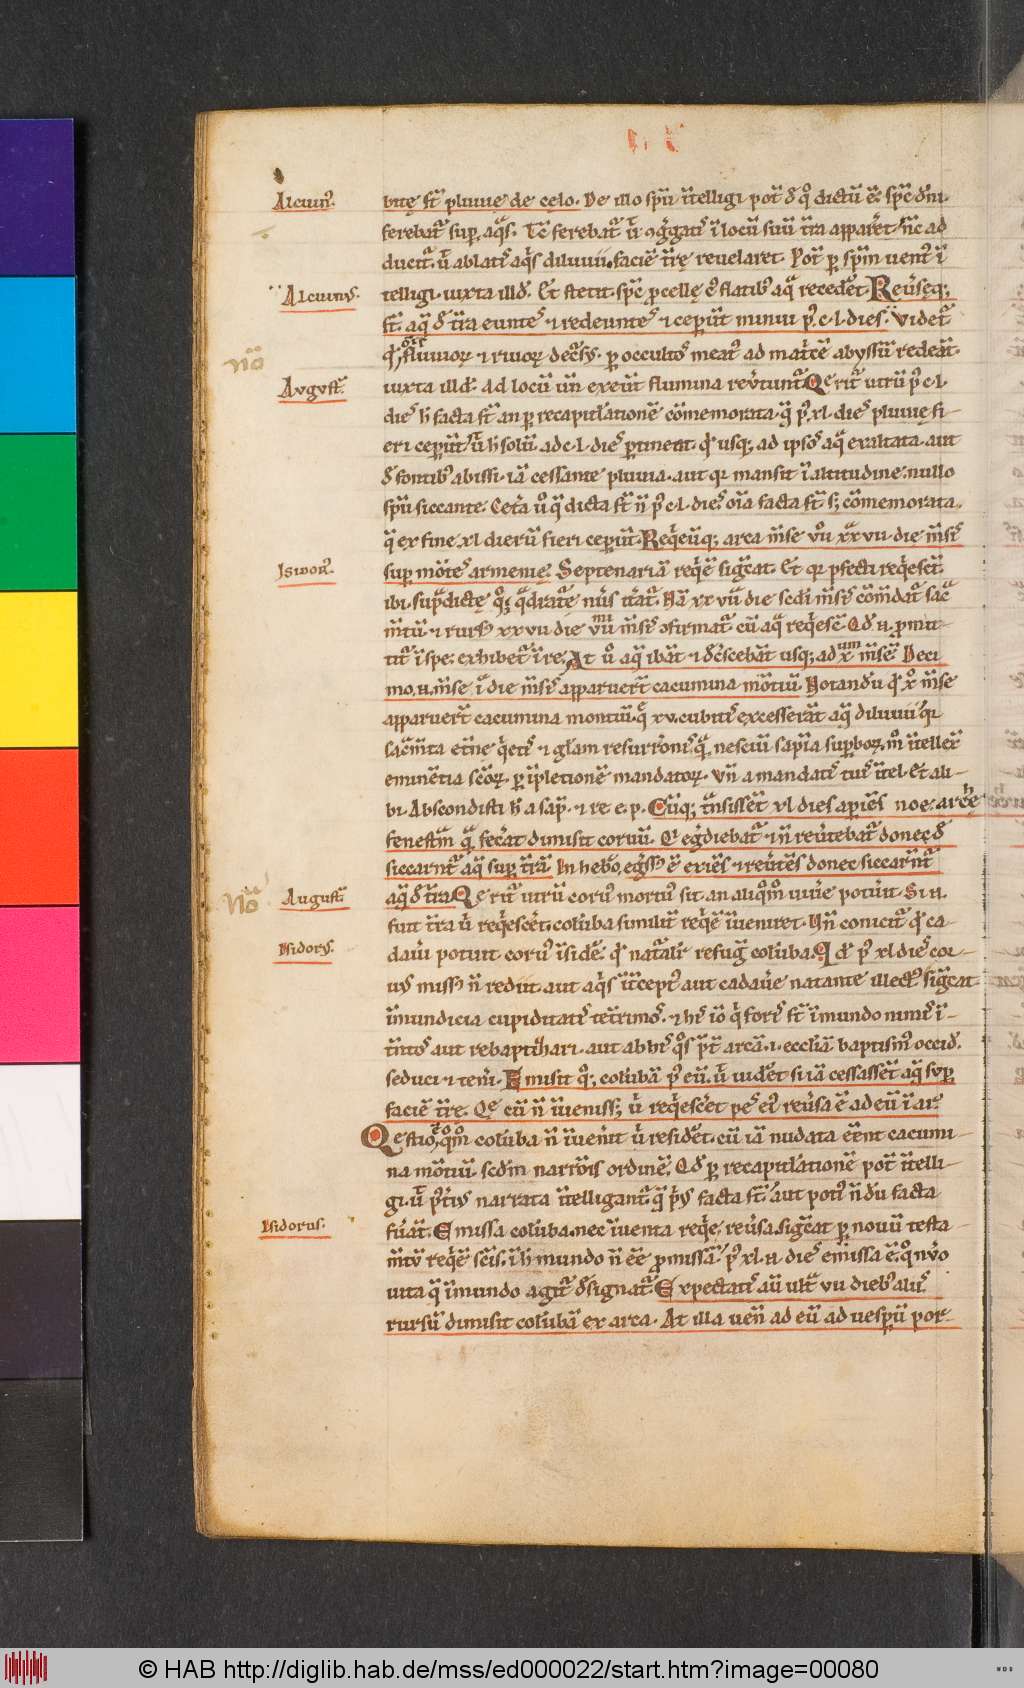 Alcuin᷒.
bite̜ st̄ pluuie de ce̜lo. De illo sp̄u ītelligi pot̄ đ q̊ dictū ē. sp̄c dn̄i.
ferebat̄ sup aq̄s. Tc̄ ferebat̄ ū ɔgḡgatis ī locū suū t̄ra appareret hc̄ ad
ducit̄. ū ablatis aq̄s diluuii. faciē t̄re̜ reuelaret. Pot̄ p sp̄m uent᷒ ī
Alcuin᷒.
telligi. iuxta illđ. Et stetit sp̄c procelle̜ ei᷒ flatib᷒ aq̄ recedēt. Reūse̜q;
st̄ aq̄ đ t̄ra euntes ⁊ redeuntes ⁊ ceperūt minui p᷒ c.l. dies. Videt̄
No᷒
qđ oīm fluuioꝝ ⁊ riuoꝝ decurs᷒. p occultos meat᷒ ad matcē abyssū redeat.
August̄.
iuxta illđ. Ad locū un̄ exeūt flumina reūtunt̄. Qe̜rit̄ utrū p᷒ c.l.
dies h̄ facta st̄ an p recapitulationē cōmemorata. q̄ p᷒ xl. dies pluuie fi-
eri ceperūt. ū h̄ solū ad c.l. dies ptineat. qđ usq; ad ipsos aq̄ exaltata. aut
đ fontib᷒ abissi. iā cessante pluuia. aut qr mansit ī altitudine. nullo
sp̄u siccante. Cet̄a ū q̄ dicta st̄ n̄ p᷒ c.l. dies. oīa facta st̄ s; cōmemorata.
q̄ ex fine xl dierū fieri ceperūt. Reqeūq; arca m̄se uīi xxvii. die m̄sis
Isidor᷒.
sup mōtes armenie̜. Septenariā reqē sigc̄at. Et qr pfecti reqescēt
ibi. sup̄dicte̜ qs; q̄drate̜ nūs it̄at̄. Nā xx vii die scd̄i m̄sis cōmdat̄ sac̄
m̄tū. ⁊ rursū xx vii die vii m̄sis ɔfirmat̄. cū aq̄ reqesc̄. Qđ .n. promit-
tit̄ ī spe. exhibet̄ ī re. At ū aq̄ ibāt ⁊ dc̄scebāt usq; ad x m̄sē. Deci
mo .n. m̄se ī die m̄sis apparuert̄ cacumina mōtiū. Notandū qđ x̊ m̄se
apparuert̄ cacumina montiū. q̄ xv. cubitis excesserāt aq̄ diluuii. qr
sac̄mta et̄ne qetis ⁊ gl̄am resurr̄onis. q̄ nesciū sap̄ia supboꝝ. m̊ ītellex̄
eminētia sc̄oꝝ. p īpletionē mandatoꝝ. Vn̄ a mandatis tuis ītel. Et ali-
bi. Abscondisti h̄ a sap̄. ⁊ re. e. p. Cūq; t̄nsissēt xl dies apiēs noe. arche̜
fenest̄m q̄ fec̄at dimisit coruū. Q egdiebat̄ ⁊ n̄ reūtebat̄ donec đ
siccarnt̄ aq̄ sup t̄rā. In hebo. egss᷒ ē exiēs ⁊ reūtēs donec siccarnt̄
No᷒
August̄.
aq̄ đ t̄ra. Qe̜rit̄ utrū coru᷒ mortu᷒ sit. an aliqm̊ uiūe potūit. Si .n.
fuit t̄ra ū reqescet̄. colūba similit̄ reqē īueniret. Vn̄ conicit̄ qđ ca-
Isidor᷒.
dauū potuit coru᷒ īsidē. qđ natalit̄ refug̅ colūba. Qđ p᷒ xl dies cor-
u᷒ miss᷒ n̄ rediit. aut aq̄s ītcept᷒ aut cadaūe natante illect᷒. sigc̄at
īmundicia cupiditatis tet̄rimos. ⁊ his io̊ q̄ foris st̄ ī mundo nimis ī-
t̄ntos aut rebaptizari. aut ab his qs pt̄ arcā .i. ecclīā baptism᷒ occid.
seduci ⁊ teneri. Emisit qs; colūbā p᷒ eū. ū uidēt si iā cessassēt aq̄ sup
faciē t̄re. Qe̜ cū n̄ īueniss; ū reqescēt pes ei᷒ reūsa ē ad eū ī ar᷒
Qestio ē qm̊ colūba n̄ īuenit ū residēt. cū iā nudata eēnt cacumi-
na mōtiū. scd̄m narrōis ordinē. Qđ p recapitulationē pot̄ ītelli-
gi. ū pt̄i᷒ narrata ītelligant̄ q̄ p̄i᷒ facta st̄. aut poti᷒ n̄dū facta
Isidorus.
fūāt. Emissa colūba. nec īuenta reqē. reūsa. sigc̄at p nouū testa-
m̄tū reqē scīs. ī h̄ mundo n̄ eē promissā. p᷒ xl .n. dies emissa ē. q̊ nūo
uita q̄ ī mundo agit̄ đsignat̄. Expectatis aū ult̄ vii dieb᷒ aliis
rursū dimisit colūbā ex arca. At illa uen̄ ad eū ad uespū por-
© HAB http://diglib.hab.de/mss/ed000022/start.htm?image=00080